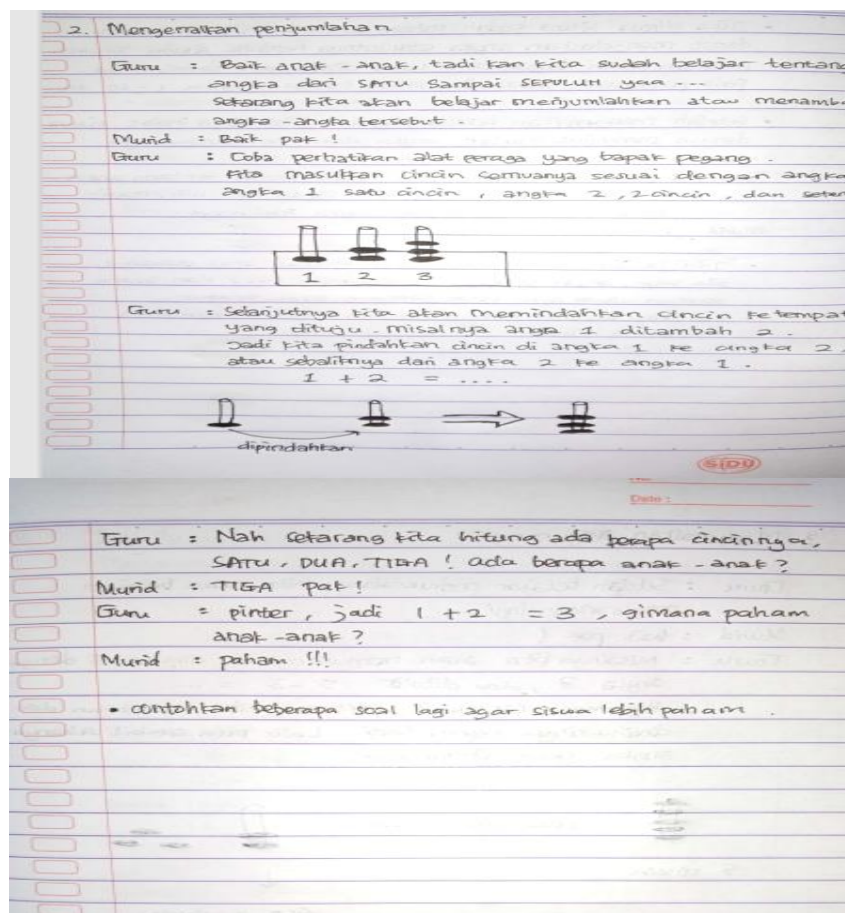 2. Mengenalkan penjumlahan
Guru : Baik anak - anak, tadi kan kita sudah belajar tentang
angka dari SATU sampai SEPULUH yaa ...
sekarang kita akan belajar menjumlahkan atau menamb
angka - angka tersebut .
Murid : Baik pak !
Guru : Coba perhatikan alat peraga yang bapak pegang .
kita masukkan cincin semuanya sesuai dengan angka
angka 1 satu cincin , angka 2 , 2 cincin , dan seter
1 2 3
Guru : Selanjutnya kita akan memindahkan cincin ke tempat
yang dituju . misalnya angka 1 ditambah 2 .
Jadi kita pindahkan cincin di angka 1 ke angka 2 .
atau sebaliknya dari angka 2 ke angka 1 .
1 + 2 = ....
dipindahkan
SIDU
Date :
Guru : Nah sekarang kita hitung ada berapa cincinnya,
SATU , DUA , TIGA ! ada berapa anak - anak ?
Murid : TIGA pak !
Guru : pinter , jadi 1 + 2 = 3 , gimana paham
anak - anak ?
Murid : paham !!!
• contohkan beberapa soal lagi agar siswa lebih paham .